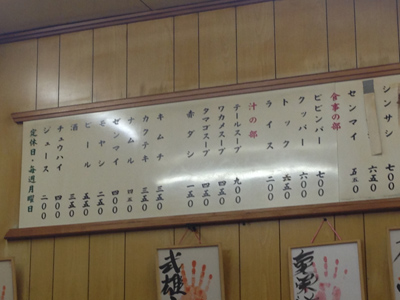 シンサシ 七〇〇
六五〇
センマイ 五五〇
食事の部
ビビンバー 七〇〇
クッパー 六〇〇
トック 六五〇
ライス 二〇〇
汁の部
テールスープ 九〇〇
ワカメスープ 四五〇
タマゴスープ 四五〇
赤ダシ 一五〇
キムチ 三五〇
カクテキ 三五〇
ナムル 四五〇
ゼンマイ 四〇〇
モヤシ 二五〇
ビール 五五〇
酒 三五〇
チュウハイ 四〇〇
ジュース 二〇〇
定休日・毎週月曜日
武雄